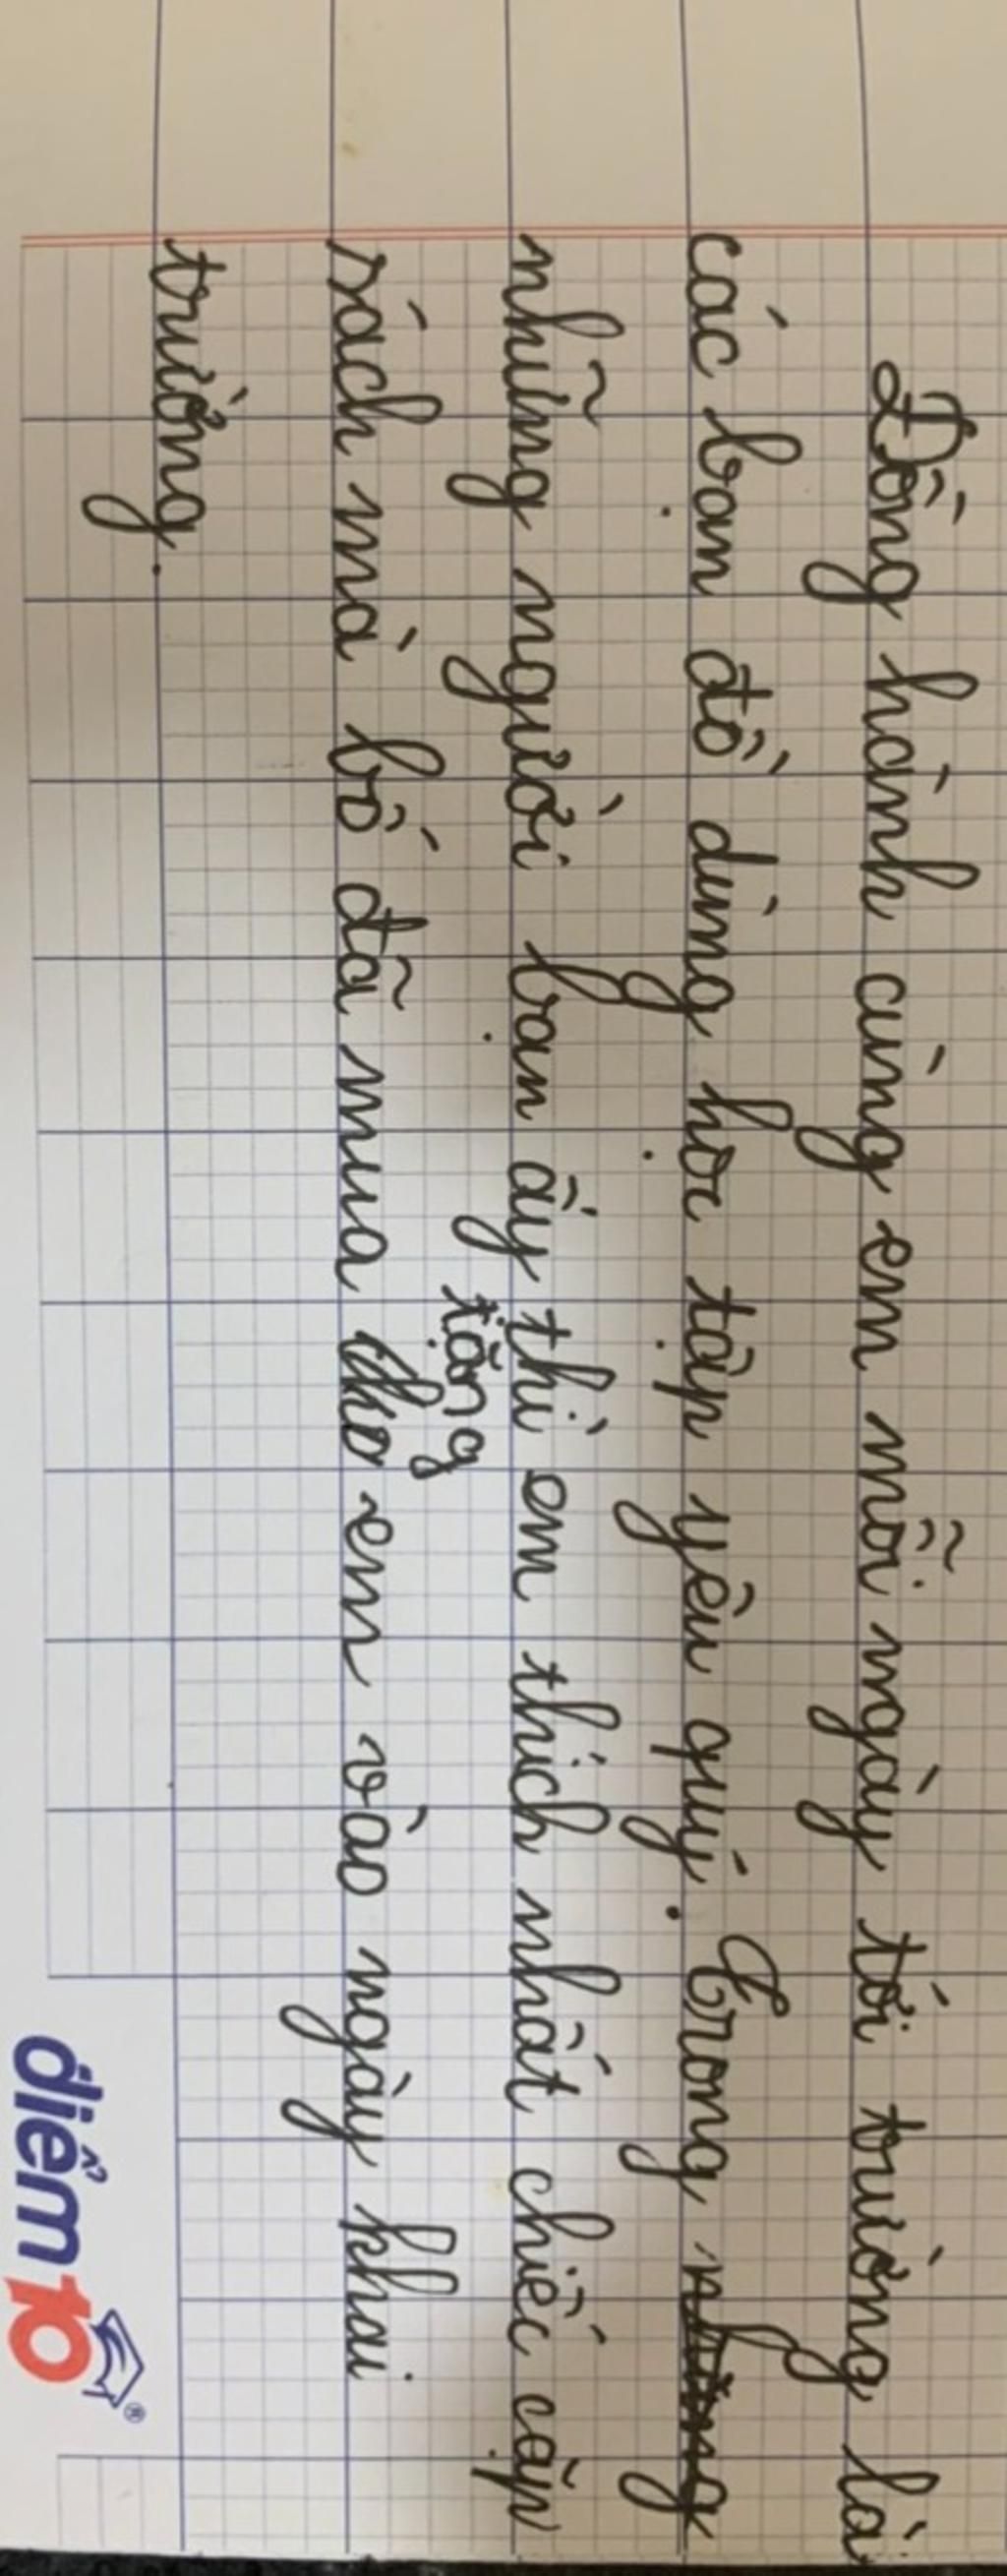 Đồng hành cùng em mỗi ngày tới trường là
các bạn đồ dùng học tập yêu quý. Trong những
những người bạn ấy thì em thích nhất chiếc cặp
tặng
sách mà bố đã mua cho em vào ngày khai
trường.
điểm 10